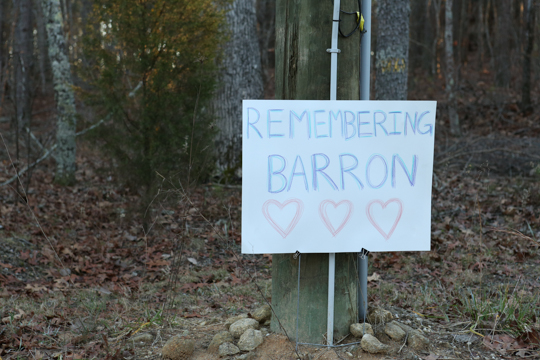 REMEMBERING
BARRON